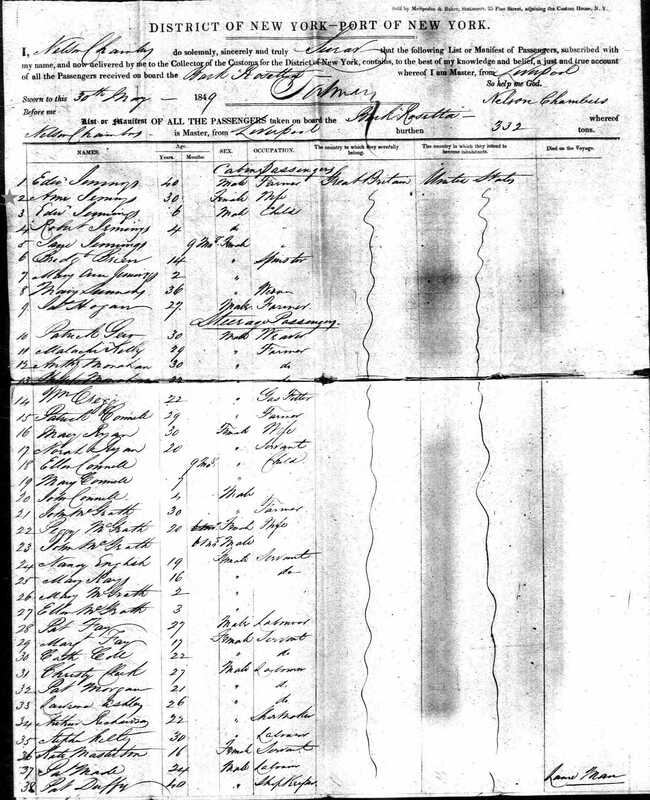 Sold by Metcpolin & Baker, Stationers, 55 Pine Street, adjoining the Custom House, N. Y.
DISTRICT OF NEW YORK—PORT OF NEW YORK.
I, Nelson Chambers do solemnly, sincerely and truly Swear that the following List or Manifest of Passengers, subscribed with
my name, and now delivered by me to the Collector of the Customs for the District of New York, contains, to the best of my knowledge and belief, a just and true account
of all the Passengers received on board the Bark Rosetta whereof I am Master, from Liverpool
Sworn to this 30th May 1849 So help me God.
Before me Nelson Chambers
List or Manifest OF ALL THE PASSENGERS taken on board the Bark Rosetta whereof
Nelson Chambers is Master, from Liverpool burthen 332 tons.
NAMES. Age. Years. Months. SEX. OCCUPATION. The country to which they severally belong. The country in which they intend to become inhabitants. Died on the Voyage.
Cabin Passengers
1 Jennings 40 Male Farmer Great Britain United States
2 Ann Jennings 30 Female Wife
3 Jennings 6 Male Child
4 Robert Jennings 4 do "
5 Jane Jennings 9 Mos Female "
6 Bridgt Brien 14 " Spinster
7 Mary Ann Jennings 2 "
8 Mary 36 "
9 Pat Hogan 27 Male Farmer
Steerage Passengers
10 Patrick 30 Male Weaver
11 Malachi Kelly 29 " Farmer
12 Monahan 30 " do
13 Monahan 22 do
14 Wm 22 " Gas Fitter
15 Patrick Connell 29 " Farmer
16 Mary Ryan 30 Female Wife
17 Norah Ryan 20 " Servant
18 Ellen Connell 9 Mos " Child
19 Mary Connell "
20 John Connell 4 Male
21 John McGrath 30 " Farmer
22 Peggy McGrath 20 Female Wife
23 John McGrath 6 Mos Male
24 Nancy English 19 Female Servant
25 Mary Hays 16 " do
26 Mary McGrath 2 "
27 Ellen McGrath 3 "
28 Pat Fay 27 Male Labourer
29 Margt Fay 17 Female Servant
30 Cath Cole 22 " do
31 Christy Clark 27 Male Labourer
32 Pat Morgan 21 " do
33 Ashley 26 " do
34 Arthur Richardson 22 " Shoemaker
35 Stephn Kelly 30 " Labourer
36 Kate Masterton 16 Female Servant
37 Pat Made 24 Male Labourer Lame Man
38 Pat Duffy 40 " Shopkeeper